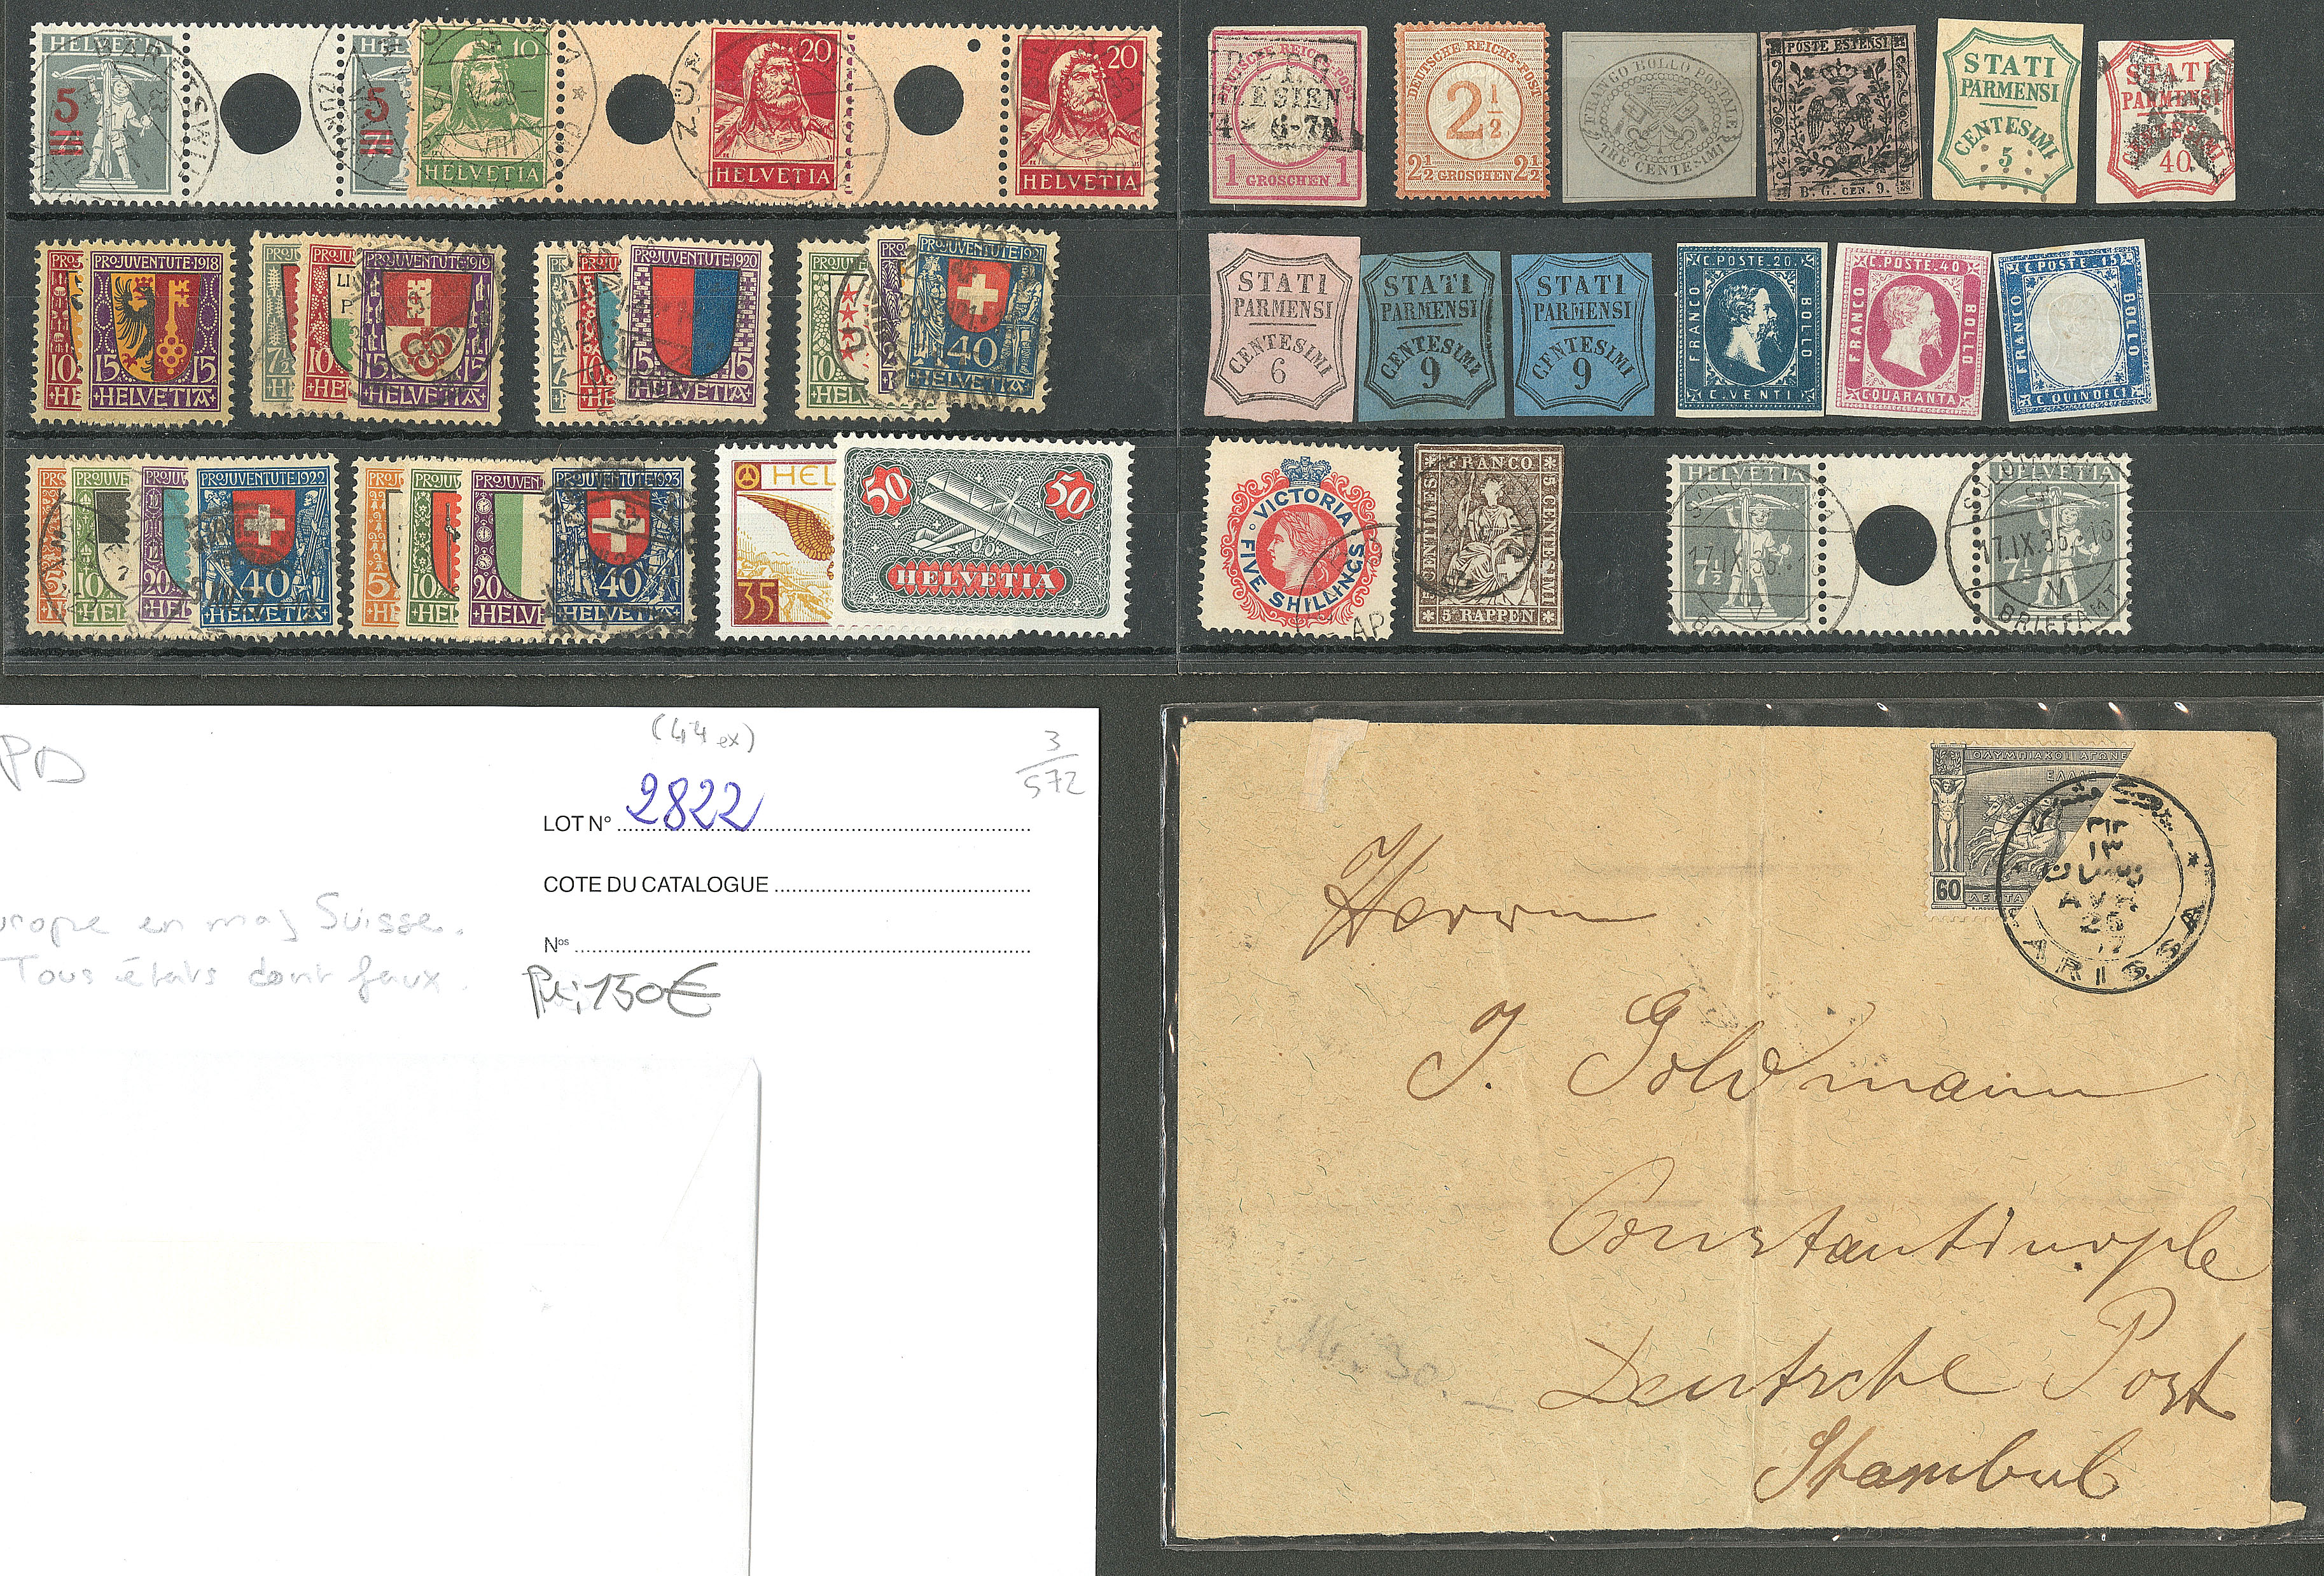 HELVETIA
5
HELVETIA
5
10
HELVETIA
20
HELVETIA
20
HELVETIA
DEUTSCHE REICHS-POST
1 GROSCHEN 1
DEUTSCHE REICHS-POST
2½
2½ GROSCHEN 2½
FRANCO BOLLO POSTALE
TRE CENTESIMI
POSTE ESTENSI
B. G. CEN. 9.
STATI
PARMENSI
CENTESIMI
5
STATI
PARMENSI
CENTESIMI
40
PRO JUVENTUTE·1918
15 15
+HELVETIA+
10
PRO JUVENTUTE·1919
15 15
+HELVETIA+
7½
PRO JUVENTUTE·1920
15 15
+HELVETIA+
10
PRO JUVENTUTE·1921
40
HELVETIA
STATI
PARMENSI
CENTESIMI
6
STATI
PARMENSI
CENTESIMI
9
STATI
PARMENSI
CENTESIMI
9
C. POSTE. 20.
FRANCO BOLLO
C. VENTI
C. POSTE. 40
FRANCO BOLLO
C. QUARANTA
C. POSTE. 15
FRANCO BOLLO
C. QUINDICI
10
20
PRO JUVENTUTE·1922
40
HELVETIA
5
10
20
PRO JUVENTUTE·1923
40
HELVETIA
HEL
35
50 50
HELVETIA
VICTORIA
FIVE SHILLINGS
FRANCO
5 CENTIMES
5 CENTESIMI
5 RAPPEN
HELVETIA
7½
17.IX.35.-16
V
HELVETIA
7½
17.IX.35.-16
V
BRIEFAMT
PD
(44 ex)
3/572
LOT N° 2822
COTE DU CATALOGUE
Nos
urope en maj Suisse.
Tous états dont faux.
Px: 150€
ΟΛΥΜΠΙΑΚΟΙ ΑΓΩΝΕ
ΕΛΛΑΣ
60
ΛΕΠΤΑ
١٣
AVR
26
ARISSA
Herrn
J. Goldmann
Constantinople
Deutsche Post
Stambul